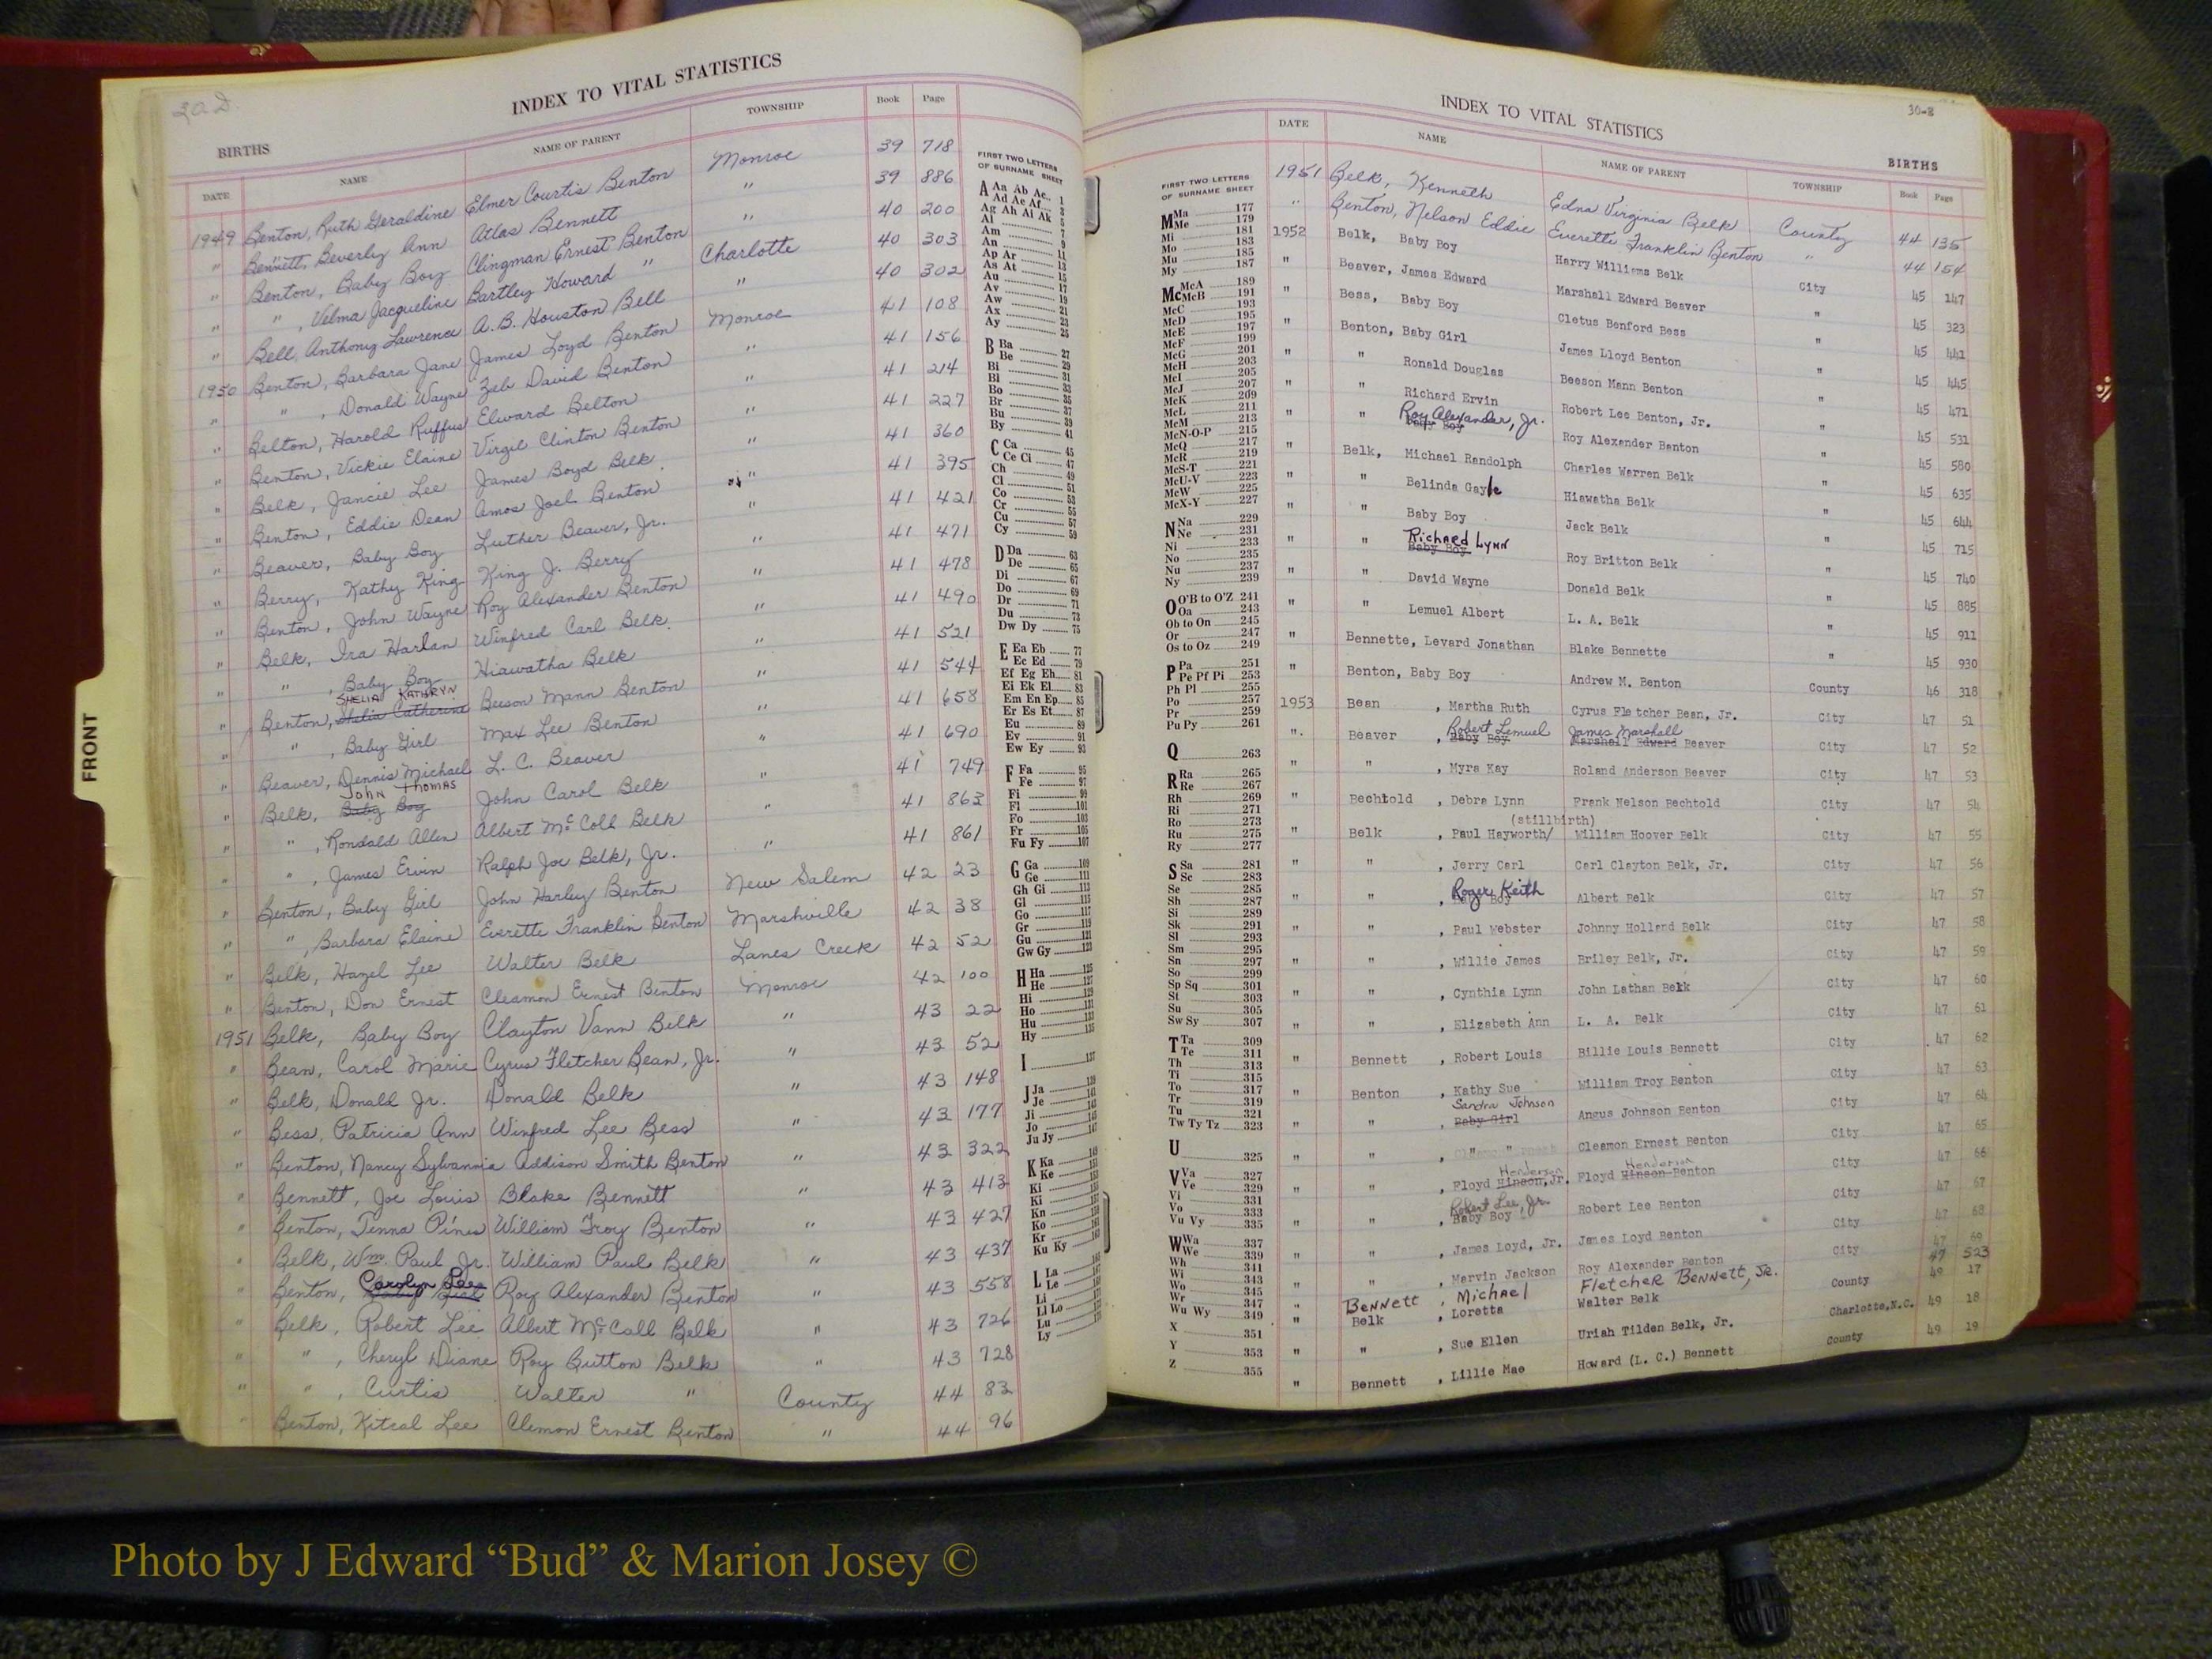 30 D
INDEX TO VITAL STATISTICS
BIRTHS
DATE NAME NAME OF PARENT TOWNSHIP Book Page
1949 Benton, Ruth Geraldine Elmer Courtis Benton Monroe 39 718
" Bennett, Beverly Ann Atlas Bennett " 39 886
" Benton, Baby Boy Clingman Ernest Benton " 40 200
" " , Velma Jacqueline Bartley Howard " Charlotte 40 303
" Bell, Anthony Lawrence A. B. Houston Bell " 40 302
1950 Benton, Barbara Jane James Loyd Benton Monroe 41 108
" " , Donald Wayne Zeb David Benton " 41 156
" Belton, Harold Ruffus Elward Belton " 41 214
" Benton, Vickie Elaine Virgil Clinton Benton " 41 227
" Belk, Jancie Lee James Boyd Belk " 41 360
" Benton, Eddie Dean Amos Joel Benton " 41 395
" Beaver, Baby Boy Luther Beaver, Jr. " 41 421
" Berry, Kathy King King J. Berry " 41 471
" Benton, John Wayne Roy Alexander Benton " 41 478
" Belk, Ira Harlan Winfred Carl Belk " 41 490
" " , Baby Boy Hiawatha Belk " 41 521
SHELIA KATHRYN
" Benton, Shelia Catherine Beeson Mann Benton " 41 544
" " , Baby Girl Max Lee Benton " 41 658
" Beaver, Dennis Michael L. C. Beaver " 41 690
John Thomas
" Belk, Baby Boy John Carol Belk " 41 749
" " , Rondald Allen Albert McColl Belk " 41 863
" " , James Ervin Ralph Joe Belk, Jr. " 41 861
" Benton, Baby Girl John Harley Benton New Salem 42 23
" " , Barbara Elaine Everette Franklin Benton Marshville 42 38
" Belk, Hazel Lee Walter Belk Lanes Creek 42 52
" Benton, Don Ernest Cleamon Ernest Benton Monroe 42 100
1951 Belk, Baby Boy Clayton Vann Belk " 43 22
" Bean, Carol Marie Cyrus Fletcher Bean, Jr. " 43 52
" Belk, Donald Jr. Donald Belk " 43 148
" Bess, Patricia Ann Winfred Lee Bess " 43 177
" Benton, Nancy Sylvanoia Addison Smith Benton " 43 322
" Bennett, Joe Louis Blake Bennett " 43 413
" Benton, Tenna Pines William Troy Benton " 43 427
" Belk, Wm. Paul Jr. William Paul Belk " 43 437
Carolyn Lee
" Benton, Baby Girl Roy Alexander Benton " 43 558
" Belk, Robert Lee Albert McCall Belk " 43 726
" " , Cheryl Diane Roy Britton Belk " 43 728
" " , Curtis Walter " County 44 83
" Benton, Kitral Lee Clemon Ernest Benton " 44 96
FIRST TWO LETTERS
OF SURNAME SHEET
A Aa Ab Ac 1
Ad Ae Af 3
Ag Ah Ai Ak 5
Al 7
Am 9
An 11
Ap Ar 13
As At 15
Au 17
Av 19
Aw 21
Ax 23
Ay 25
B Ba 27
Be 29
Bi 31
Bl 33
Bo 35
Br 37
Bu 39
By 41
C Ca 45
Ce Ci 47
Ch 49
Cl 51
Co 53
Cr 55
Cu 57
Cy 59
D Da 63
De 65
Di 67
Do 69
Dr 71
Du 73
Dw Dy 75
E Ea Eb 77
Ec Ed 79
Ef Eg Eh 81
Ei Ek El 83
Em En Ep 85
Er Es Et 87
Eu 89
Ev 91
Ew Ey 93
F Fa 95
Fe 97
Fi 99
Fl 101
Fo 103
Fr 105
Fu Fy 107
G Ga 109
Ge 111
Gh Gi 113
Gl 115
Go 117
Gr 119
Gu 121
Gw Gy 123
H Ha 125
He 127
Hi 129
Ho 131
Hu 133
Hy 135
I 137
J Ja 139
Je 141
Ji 143
Jo 145
Ju Jy 147
K Ka 149
Ke
Ki
Kl
Kn
Ko
Kr
Ku Ky
L La
Le
Li
Ll Lo
Lu
Ly
FRONT
INDEX TO VITAL STATISTICS
30-8
BIRTHS
DATE NAME NAME OF PARENT TOWNSHIP Book Page
FIRST TWO LETTERS
OF SURNAME SHEET
M Ma 177
Me 179
Mi 181
Mo 183
Mu 185
My 187
Mc McA 189
McB 191
McC 193
McD 195
McE 197
McF 199
McG 201
McH 203
McI 205
McJ 207
McK 209
McL 211
McM 213
McN-O-P 215
McQ 217
McR 219
McS-T 221
McU-V 223
McW 225
McX-Y 227
N Na 229
Ne 231
Ni 233
No 235
Nu 237
Ny 239
O O'B to O'Z 241
Oa 243
Ob to On 245
Or 247
Os to Oz 249
P Pa 251
Pe Pf Pi 253
Ph Pl 255
Po 257
Pr 259
Pu Py 261
Q 263
R Ra 265
Re 267
Rh 269
Ri 271
Ro 273
Ru 275
Ry 277
S Sa 281
Sc 283
Se 285
Sh 287
Si 289
Sk 291
Sl 293
Sm 295
Sn 297
So 299
Sp Sq 301
St 303
Su 305
Sw Sy 307
T Ta 309
Te 311
Th 313
Ti 315
To 317
Tr 319
Tu 321
Tw Ty Tz 323
U 325
V Va 327
Ve 329
Vi 331
Vo 333
Vu Vy 335
W Wa 337
We 339
Wh 341
Wi 343
Wo 345
Wr 347
Wu Wy 349
X 351
Y 353
Z 355
1951 Belk, Kenneth Edna Virginia Belk County 44 135
" Benton, Nelson Eddie Everette Franklin Benton " 44 154
1952 Belk, Baby Boy Harry Williams Belk City 45 147
" Beaver, James Edward Marshall Edward Beaver " 45 323
" Bess, Baby Boy Cletus Benford Bess " 45 441
" Benton, Baby Girl James Lloyd Benton " 45 445
" " Ronald Douglas Beeson Mann Benton " 45 471
" " Richard Ervin Robert Lee Benton, Jr. " 45 531
Roy Alexander, Jr.
" " Baby Boy Roy Alexander Benton " 45 580
" Belk, Michael Randolph Charles Warren Belk " 45 635
" " Belinda Gayle Hiawatha Belk " 45 644
" " Baby Boy Jack Belk " 45 715
Richard Lynn
" " Baby Boy Roy Britton Belk " 45 740
" " David Wayne Donald Belk " 45 885
" " Lemuel Albert L. A. Belk " 45 911
" Bennette, Levard Jonathan Blake Bennette " 45 930
" Benton, Baby Boy Andrew M. Benton County 46 318
1953 Bean , Martha Ruth Cyrus Fletcher Bean, Jr. City 47 51
Robert Lemuel James Marshall
" Beaver , Baby Boy Marshall Edward Beaver City 47 52
" " , Myra Kay Roland Anderson Beaver City 47 53
" Bechtold , Debra Lynn Frank Nelson Bechtold City 47 54
(stillbirth)
" Belk , Paul Hayworth/ William Hoover Belk City 47 55
" " , Jerry Carl Carl Clayton Belk, Jr. City 47 56
Roger Keith
" " , Baby Boy Albert Belk City 47 57
" " , Paul Webster Johnny Holland Belk City 47 58
" " , Willie James Briley Belk, Jr. City 47 59
" " , Cynthia Lynn John Lathan Belk City 47 60
" " , Elizabeth Ann L. A. Belk City 47 61
" Bennett , Robert Louis Billie Louis Bennett City 47 62
" Benton , Kathy Sue William Troy Benton City 47 63
Sandra Johnson
" " , Baby Girl Angus Johnson Benton City 47 64
" " , Cleamon Ernest Benton City 47 65
Henderson Henderson
" " , Floyd Hinson, Jr. Floyd Hinson Benton City 47 66
Robert Lee, Jr.
" " , Baby Boy Robert Lee Benton City 47 67
" " , James Loyd, Jr. James Loyd Benton City 47 68
" " , Marvin Jackson Roy Alexander Benton City 47 69
" Bennett , Michael Fletcher Bennett, Jr. 47 523
" Belk , Loretta Walter Belk County 49 17
" " , Sue Ellen Uriah Tilden Belk, Jr. Charlotte, N.C. 49 18
" Bennett , Lillie Mae Howard (L. C.) Bennett County 49 19
Photo by J Edward “Bud” & Marion Josey ©